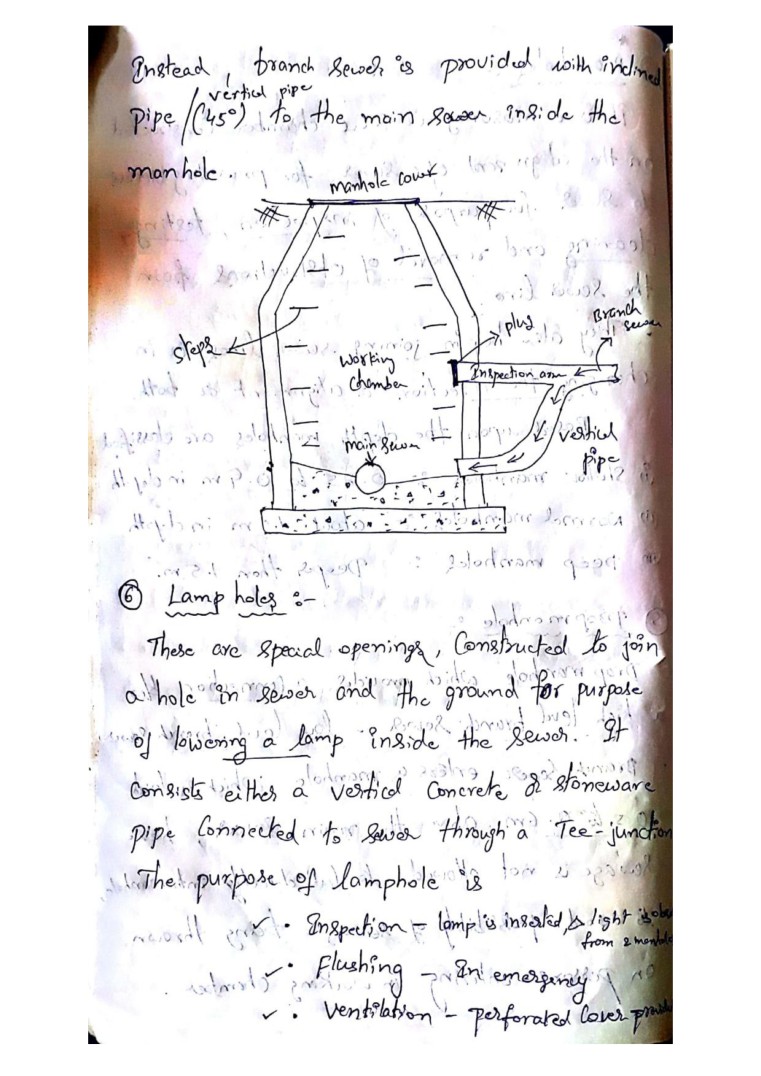 Instead, branch sewer is provided with inclined
vertical pipe
pipe / (45°) to the main sewer inside the
manhole.
manhole cover
Branch
sewer
plug
steps
working
chamber
Inspection arm
main sewer
vertical
pipe
⑥ Lamp holes :-
These are special openings, Constructed to join
a hole in sewer and the ground for purpose
of lowering a lamp inside the sewer. It
consists either a vertical concrete or stoneware
pipe connected to sewer through a Tee-junction
The purpose of lamphole is
✓ • Inspection - lamp is inserted, & light is
from 2
✓ • Flushing - In emergency
✓ • Ventilation - perforated cover